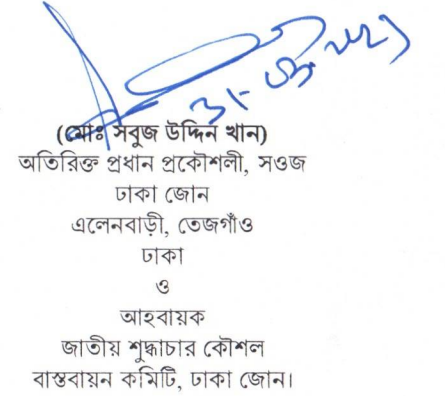 (মোঃ সবুজ উদ্দিন খান)
অতিরিক্ত প্রধান প্রকৌশলী, সওজ
ঢাকা জোন
এলেনবাড়ী, তেজগাঁও
ঢাকা
ও
আহবায়ক
জাতীয় শুদ্ধাচার কৌশল
বাস্তবায়ন কমিটি, ঢাকা জোন।